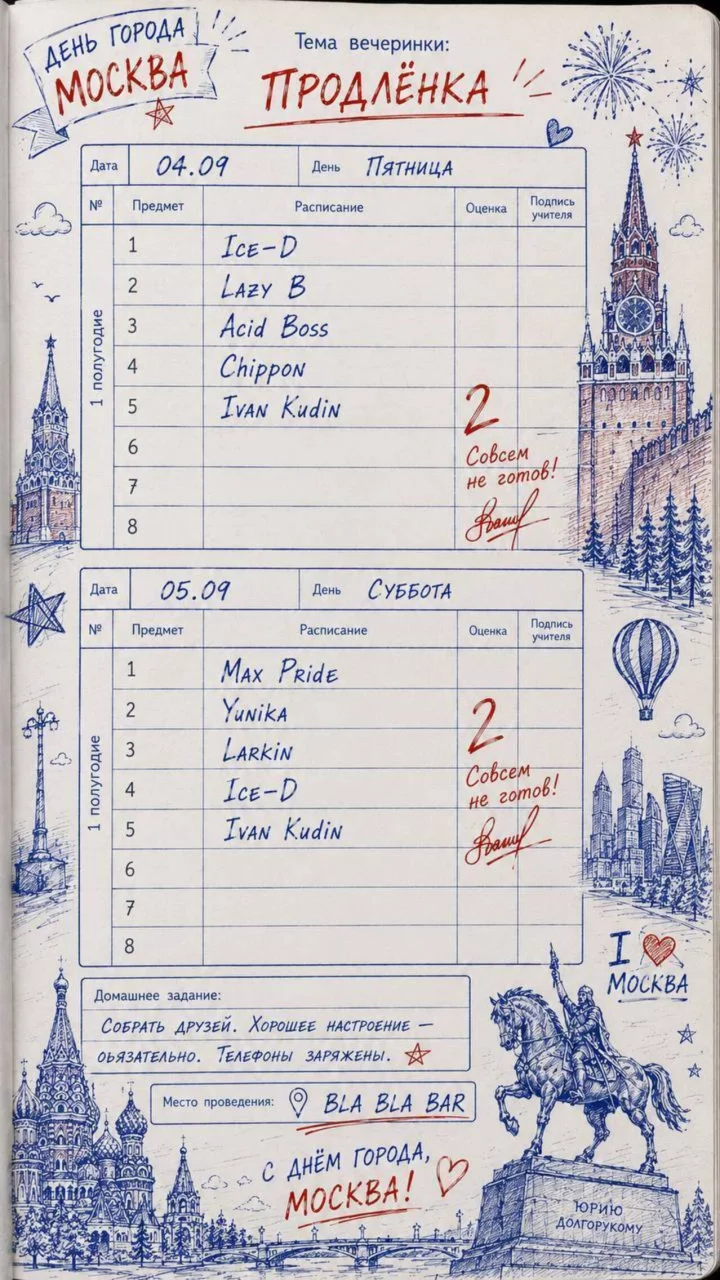 ДЕНЬ ГОРОДА
МОСКВА
Тема вечеринки:
ПРОДЛЁНКА
Дата 04.09 День ПЯТНИЦА
№ Предмет Расписание Оценка Подпись учителя
1 полугодие
1 ICE-D
2 LAZY B
3 Acid Boss
4 Chippon
5 IVAN Kudin
6
7
8
2
Совсем
не готов!
Дата 05.09 День СУББОТА
№ Предмет Расписание Оценка Подпись учителя
1 полугодие
1 MAX PRidE
2 YUNiKA
3 LARKiN
4 ICE-D
5 IVAN Kudin
6
7
8
2
Совсем
не готов!
I ❤
МОСКВА
Домашнее задание:
СОБРАТЬ ДРУЗЕЙ. ХОРОШЕЕ НАСТРОЕНИЕ —
ОЬЯЗАТЕЛЬНО. ТЕЛЕФОНЫ ЗАРЯЖЕНЫ.
Место проведения: BLA BLA BAR
С ДНЁМ ГОРОДА,
МОСКВА!
ЮРИЮ
ДОЛГОРУКОМУ